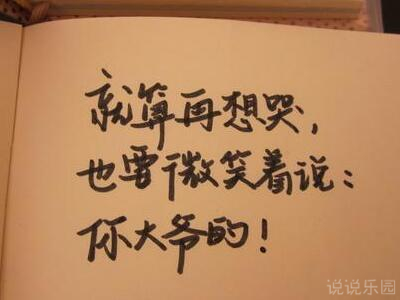 就算再想哭，
也要微笑着说：
你大爷的！
说说乐园